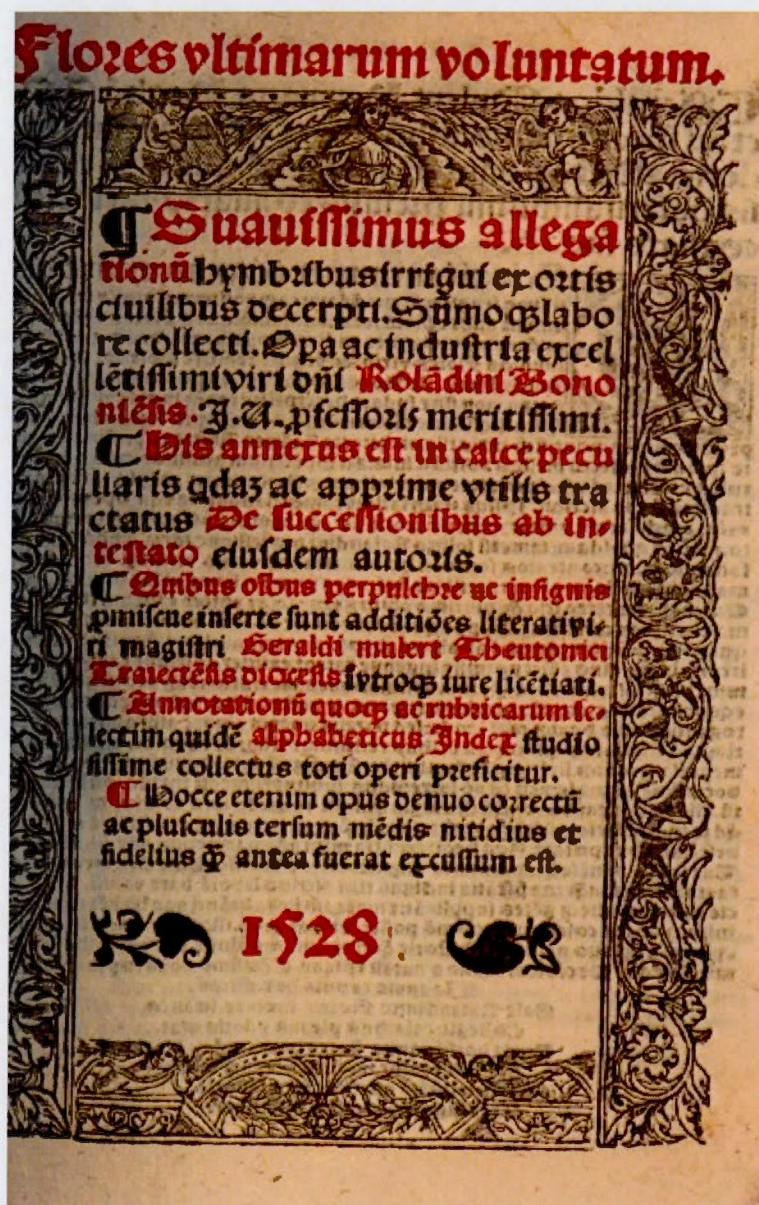 Flores vltimarum voluntatum.
¶ Suauissimus allega
tionū hymbribus irrigui ex ortis
ciuilibus decerpti. Sūmoqꝫ labo
re collecti. Oꝑa ac industria excel
lētissimi viri dñi Rolādini Bono
niēsis. J. U. ꝓfessoris meritissimi.
¶ His annexus est in calce pecu
liaris qdaꝫ ac apprime vtilis tra
ctatus De successionibus ab in-
testato eiusdem autoris.
¶ Quibus oībus perpulchre ac insignis
ꝓmiscue inserte sunt additiões literati vi-
ri magistri Geraldi mulert Theutonici
Traiectēsis diocesis ī vtroqꝫ iure licētiati.
¶ Annotationū quoqꝫ ac rubricarum se-
lectim quidē alphabeticus Index studio
sissime collectus toti operi preficitur.
¶ Hocce etenim opus denuo correctū
ac plusculis tersum mēdis nitidius et
fidelius ꝙ̃ antea fuerat excussum est.
1528